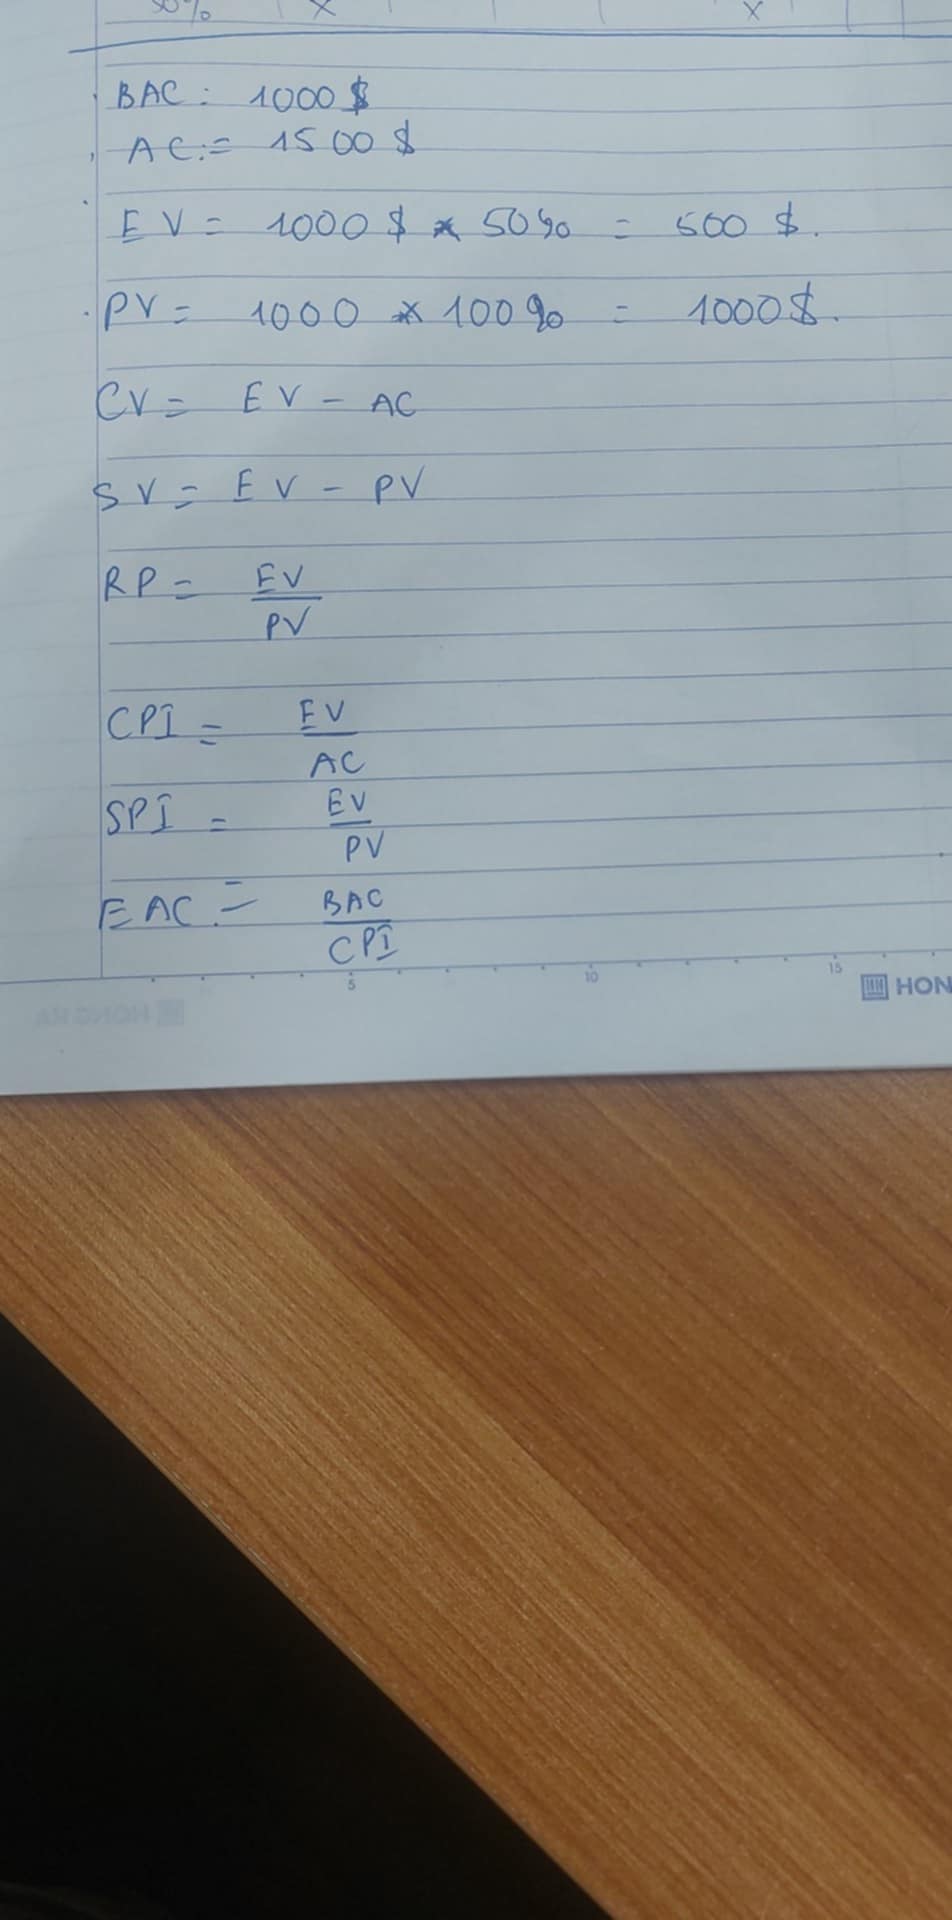 50% X X
BAC: 1000$
AC:= 1500$
EV= 1000$ * 50% = 500$.
PV= 1000 * 100% = 1000$.
CV= EV - AC
SV= EV - PV
RP= EV
PV
CPI = EV
AC
SPI = EV
PV
EAC.= BAC
CPI
5 10 15
HON
HONG HA